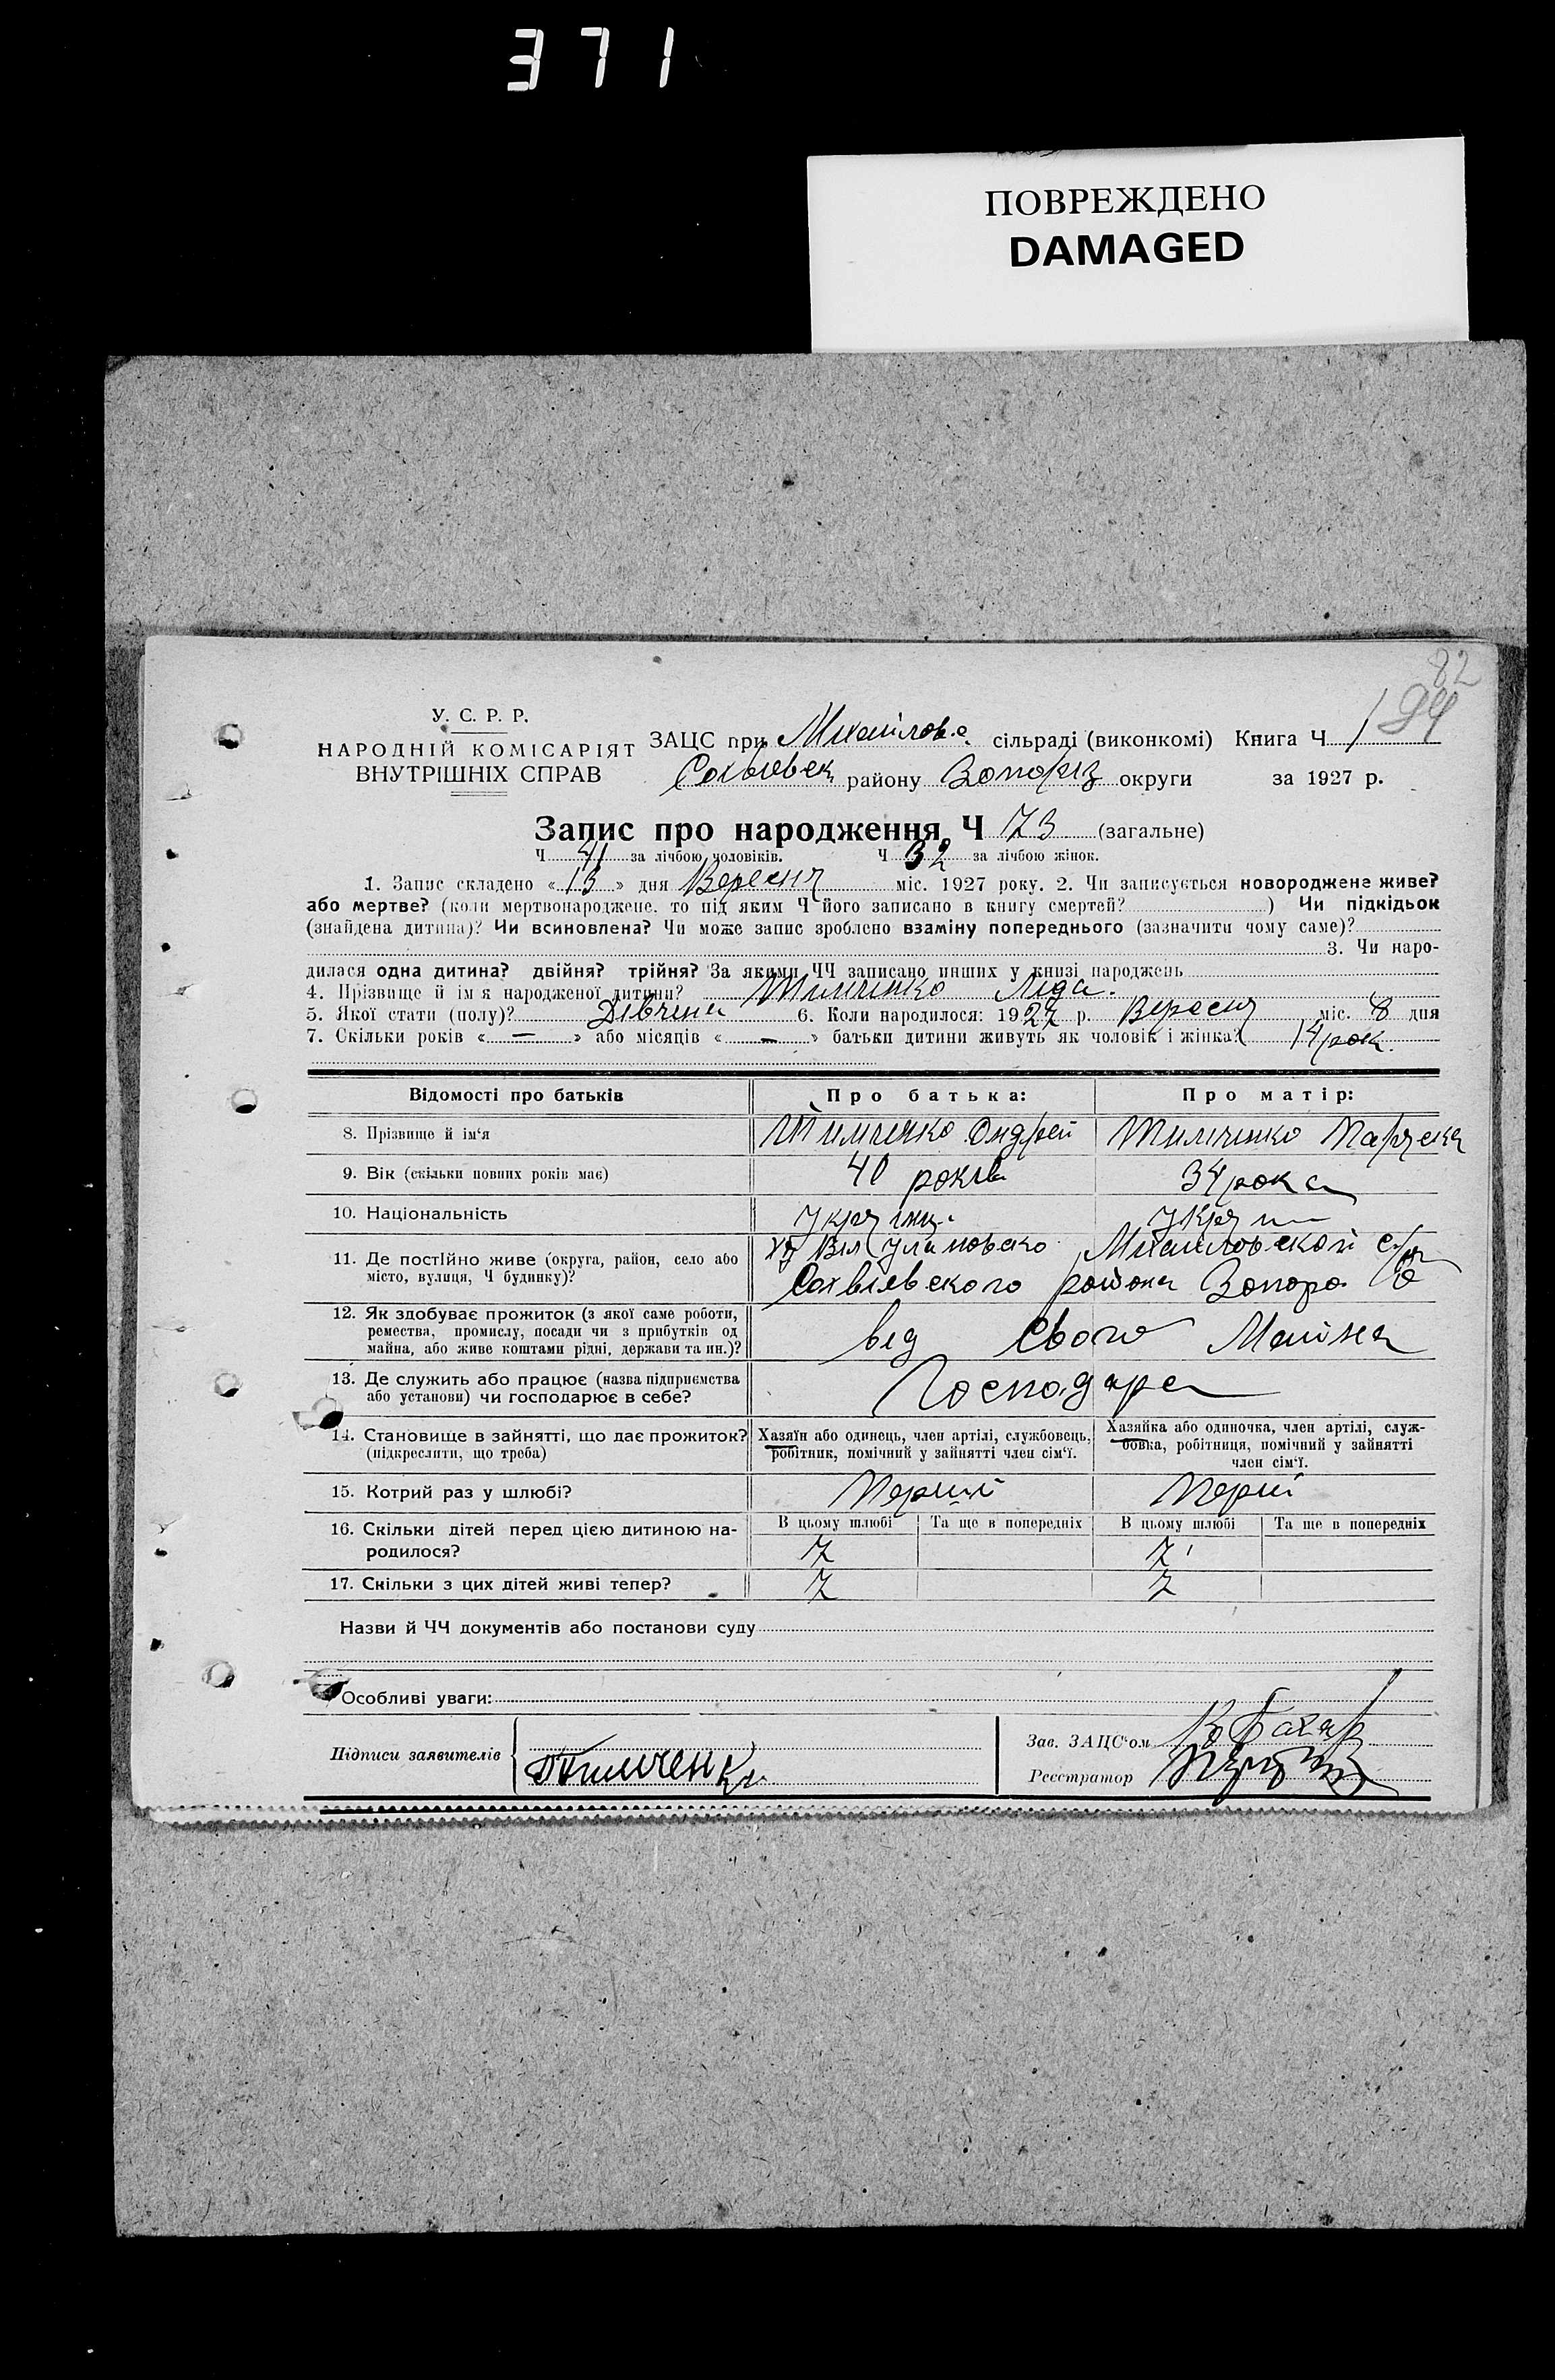 371
ПОВРЕЖДЕНО
DAMAGED
82
У. С. Р. Р.
НАРОДНІЙ КОМІСАРІЯТ
ВНУТРІШНІХ СПРАВ
ЗАЦС при Михайловс. сільраді (виконкомі) Книга Ч 1
району Запоріз округи за 1927 р.
Запис про народження Ч 73 (загальне)
Ч 41 за лічбою чоловіків. Ч 32 за лічбою жінок.
1. Запис складено « 13 » дня Вересня міс. 1927 року. 2. Чи записується новороджене живе?
або мертве? (коли мертвонароджене, то під яким Ч його записано в книгу смертей? ) Чи підкідьок
(знайдена дитина)? Чи всиновлена? Чи може запис зроблено взаміну попереднього (зазначити чому саме)?
3. Чи наро-
дилася одна дитина? двійня? трійня? За якими ЧЧ записано инших у книзі народжень
4. Прізвище й ім'я народженої дитини? Тимченко Ліда.
5. Якої стати (полу)? Дівчина 6. Коли народилося: 1927 р. Вересня міс. 8 дня
7. Скільки років « — » або місяців « — » батьки дитини живуть як чоловік і жінка? 14 рок.
Відомості про батьків Про батька: Про матір:
8. Прізвище й ім'я Тимченко Андрей Тимченко
9. Вік (скільки повних років має) 40 років 34 рока
10. Національність україн.
11. Де постійно живе (округа, район, село або
місто, вулиця, Ч будинку)? Михайловской с/р
района Запоро
12. Як здобуває прожиток (з якої саме роботи,
ремества, промислу, посади чи з прибутків од
майна, або живе коштами рідні, держави та ин.)? від свого Майна
13. Де служить або працює (назва підприємства
або установи) чи господарює в себе? Господаре
14. Становище в зайнятті, що дає прожиток?
(підкреслити, що треба)
Хазяїн або одинець, член артілі, службовець,
робітник, помічний у зайнятті член сім'ї.
Хазяйка або одиночка, член артілі, служ-
бовка, робітниця, помічний у зайнятті
член сім'ї.
15. Котрий раз у шлюбі? Перший Перши
16. Скільки дітей перед цією дитиною на-
родилося?
В цьому шлюбі Та ще в попередніх В цьому шлюбі Та ще в попередніх
7 7
17. Скільки з цих дітей живі тепер? 7 7
Назви й ЧЧ документів або постанови суду
Особливі уваги:
Підписи заявителів Тимченко
Зав. ЗАЦС'ом
Реєстратор